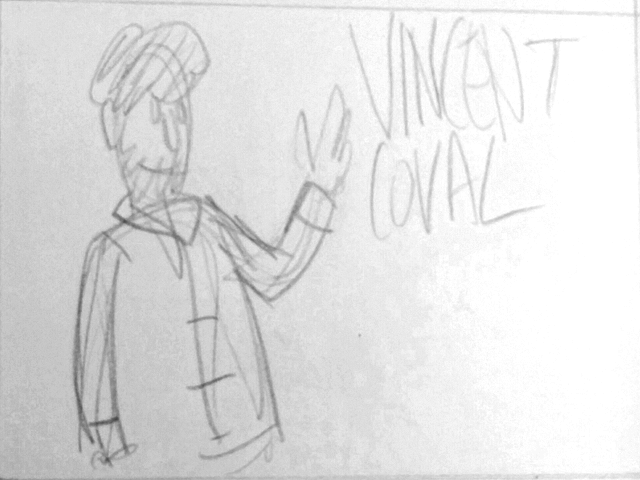 VINCENT
COVAL